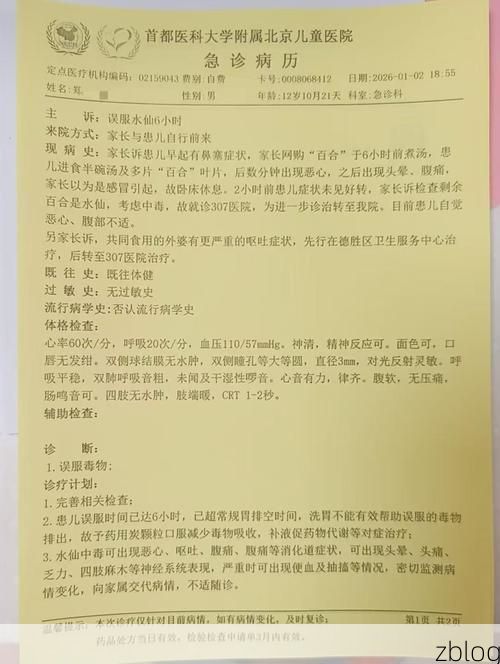 首都医科大学附属北京儿童医院
急诊病历
定点医疗机构编码：02159043 费别:自费 卡号:0008068412 日期:2026-01-02 18:55
姓名:郑 性别:男 年龄:12岁10月21天 科室:急诊科
主 诉：误服水仙6小时
来院方式：家长与患儿自行前来
现 病 史：家长诉患儿早起有鼻塞症状，家长网购“百合”于6小时前煮汤，患
儿进食半碗汤及多片“百合”叶片，后数分钟出现恶心，之后出现头晕、腹痛，
家长以为是感冒引起，故卧床休息。2小时前患儿症状未见好转，家长诉检查剩余
百合是水仙，考虑中毒，故就诊307医院，为进一步诊治转至我院。目前患儿自觉
恶心、腹部不适。
另家长诉，共同食用的外婆有更严重的呕吐症状，先行在德胜区卫生服务中心治
疗，后转至307医院治疗。
既 往 史：既往体健
过 敏 史：无过敏史
流行病学史:否认流行病学史
体格检查：
心率60次/分，呼吸20次/分，血压110/57mmHg。神清，精神反应可。面色可。口
唇无发绀。双侧球结膜无水肿，双侧瞳孔等大等圆，直径3mm，对光反射灵敏。呼
吸平稳，双肺呼吸音粗，未闻及干湿性啰音。心音有力，律齐。腹软，无压痛，
肠鸣音可。四肢无水肿，肢端暖，CRT 1-2秒。
辅助检查：
诊 断：
1.误服毒物;
诊疗计划：
1.完善相关检查；
2.患儿误服时间已达6小时，已超常规胃排空时间，洗胃不能有效帮助误服的毒物
排出，故予药用炭颗粒口服减少毒物吸收，补液促药物代谢等对症治疗；
3.水仙中毒可出现恶心、呕吐、腹痛、腹痛等消化道症状，可出现头晕、头痛、
乏力、四肢麻木等神经系统表现，严重时可出现便血及抽搐等情况，密切监测病
情变化，向家属交代病情，不适随诊。
温馨提示：本次诊疗仅针对目前病情，如有病情变化，及时复诊； 第1页 共2页
药品处方当日有效，检验检查申请单3月内有效。
zblog